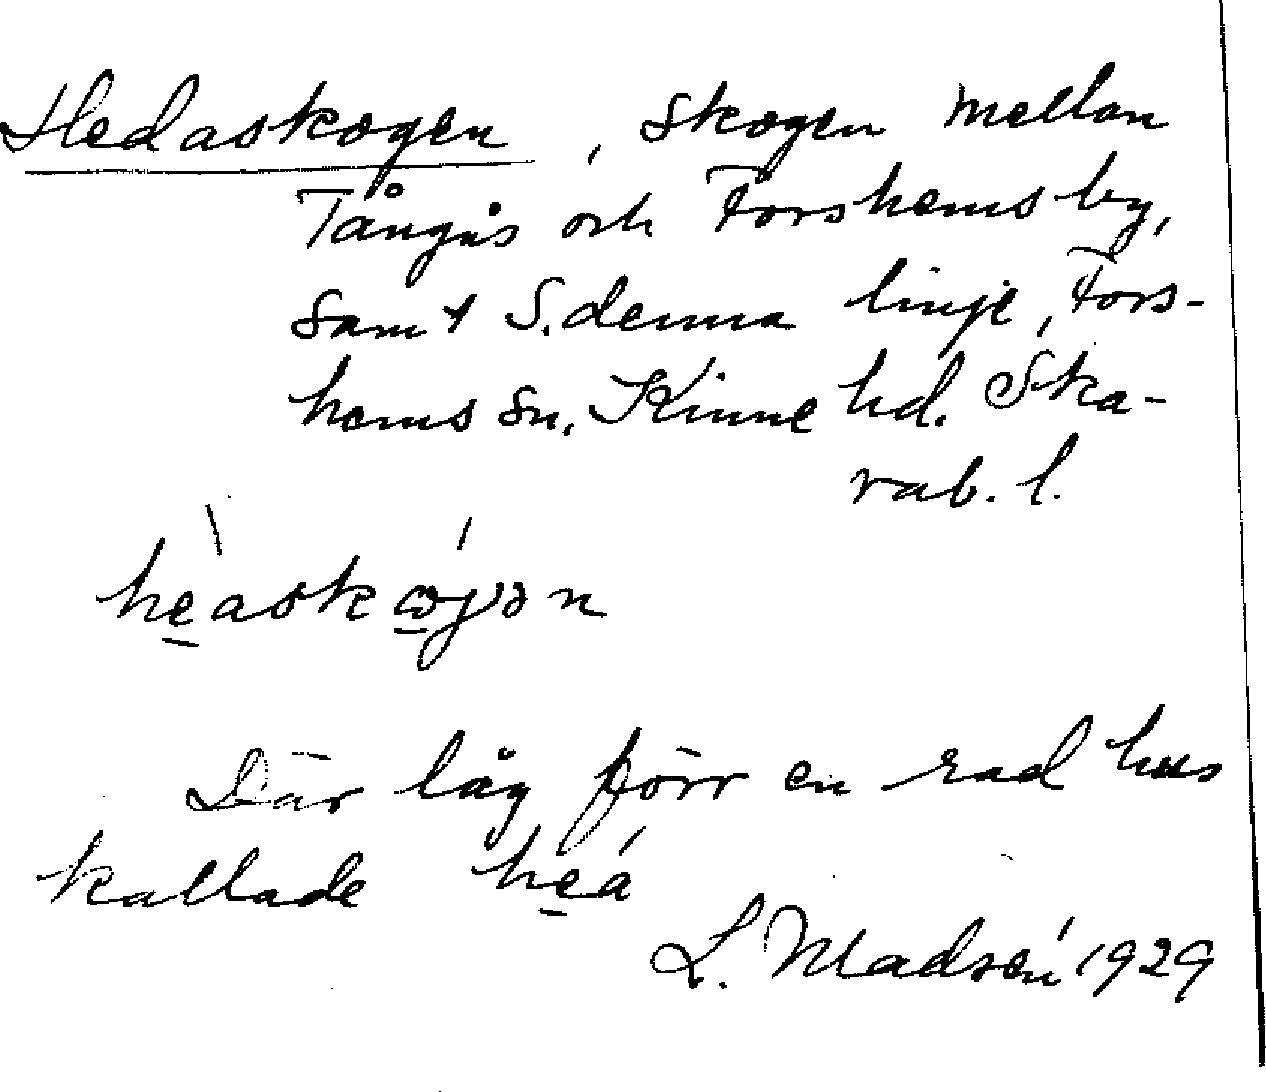 Hedaskogen, skogen mellan
Tångås och Forshems by,
samt S. denna linje, Fors-
hems sn, Kinne hd. Ska-
rab. l.
hèaskɷ́jən
Där låg förr en rad hus
kallade heá
L. Madsén 1929